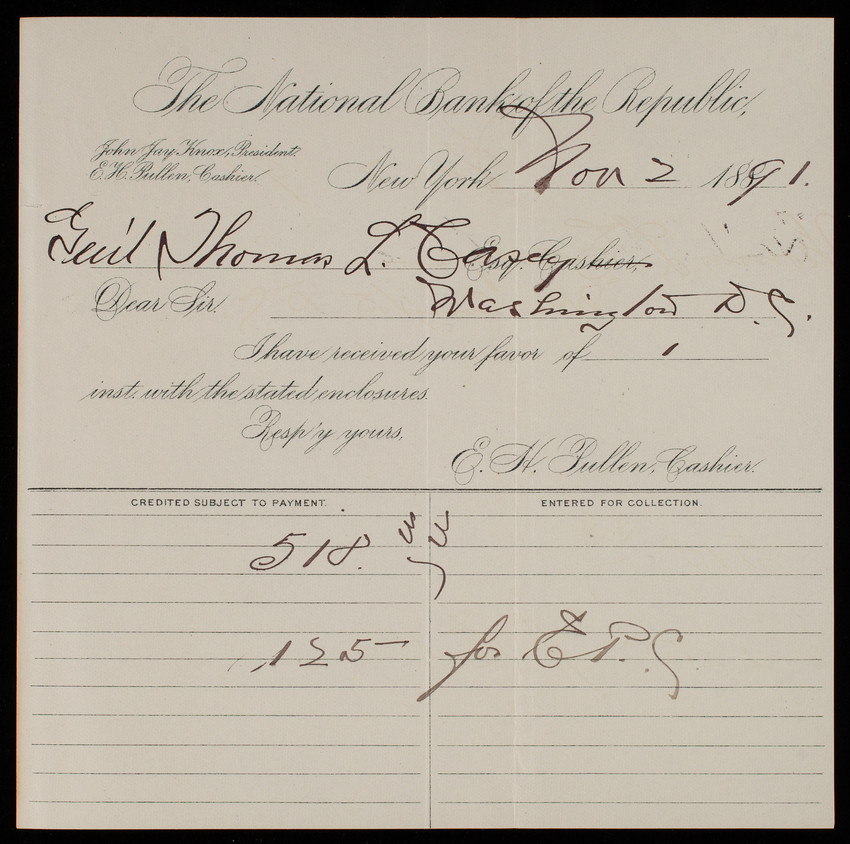 The National Bank of the Republic,
John Jay Knox, President.
E.H. Pullen, Cashier.
New York Nov 2 1891.
Gen'l Thomas L. Casey Esq. Cashier,
Dear Sir. Washington D.C.
I have received your favor of 1
inst. with the stated enclosures.
Resp'y yours,
E. H. Pullen, Cashier.
CREDITED SUBJECT TO PAYMENT. ENTERED FOR COLLECTION.
518.
125 — for E.P.C